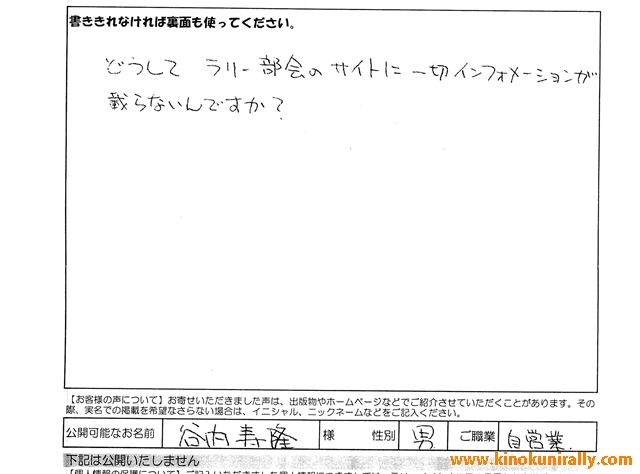 書ききれなければ裏面も使ってください。
どうして ラリー部会のサイトに一切インフォメーションが
載らないんですか？
【お客様の声について】お寄せいただきました声は、出版物やホームページなどでご紹介させていただくことがあります。その
際、実名での掲載を希望なさらない場合は、イニシャル、ニックネームなどをご記入ください。
公開可能なお名前 谷内 隆 様 性別 男 ご職業 自営業.
下記は公開いたしません
www.kinokunirally.com